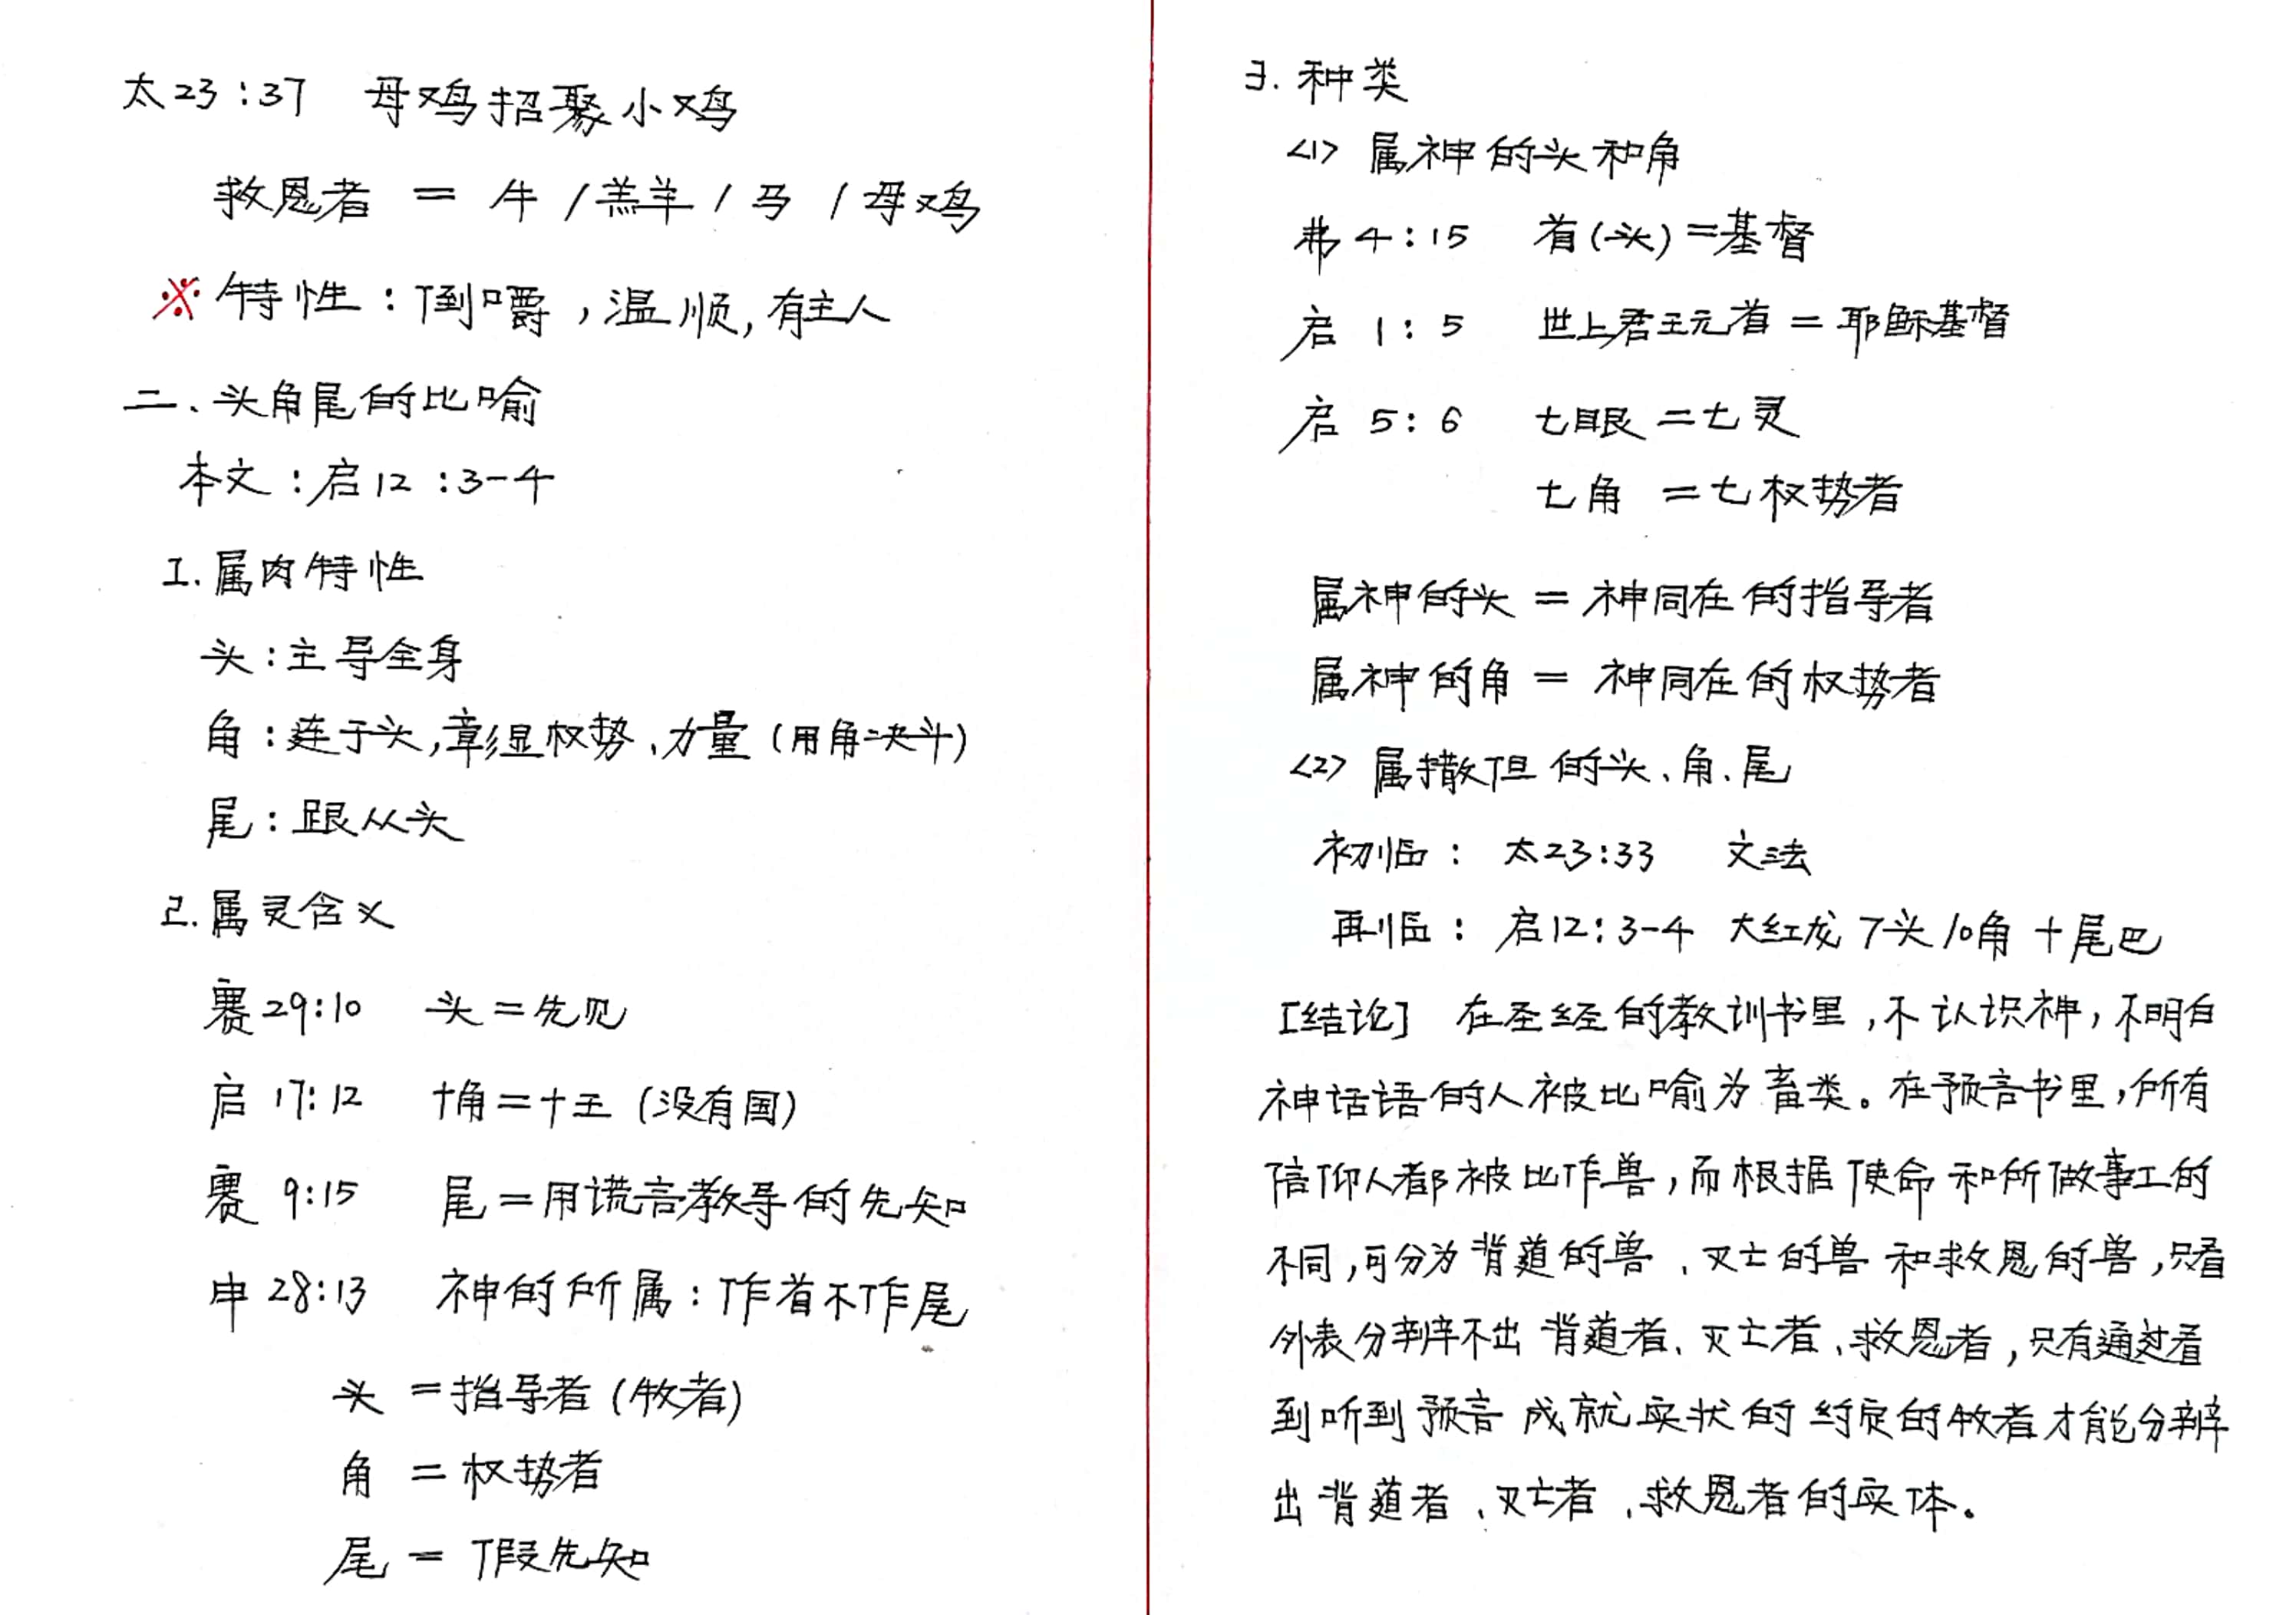 太23:37 母鸡招聚小鸡
救恩者 = 牛/羔羊/马/母鸡
※特性:倒嚼,温顺,有主人
二、头角尾的比喻
本文:启12:3-4
1.属肉特性
头:主导全身
角:连于头,彰显权势、力量(用角决斗)
尾:跟从头
2.属灵含义
赛29:10 头=先见
启17:12 十角=十王(没有国)
赛9:15 尾=用谎言教导的先知
申28:13 神的所属:作首不作尾
头=指导者(牧者)
角=权势者
尾=假先知
3.种类
<1> 属神的头和角
弗4:15 首(头)=基督
启1:5 世上君王元首=耶稣基督
启5:6 七眼=七灵
七角=七权势者
属神的头=神同在的指导者
属神的角=神同在的权势者
<2> 属撒但的头、角、尾
初临:太23:33 文法
再临:启12:3-4 大红龙7头10角+尾巴
[结论] 在圣经的教训书里,不认识神,不明白
神话语的人被比喻为畜类。在预言书里,所有
信仰人都被比作兽,而根据使命和所做事工的
不同,可分为背道的兽、灭亡的兽和救恩的兽,只看
外表分辨不出背道者、灭亡者、救恩者,只有通过看
到听到预言成就实状的约定的牧者才能分辨
出背道者、灭亡者、救恩者的实体。